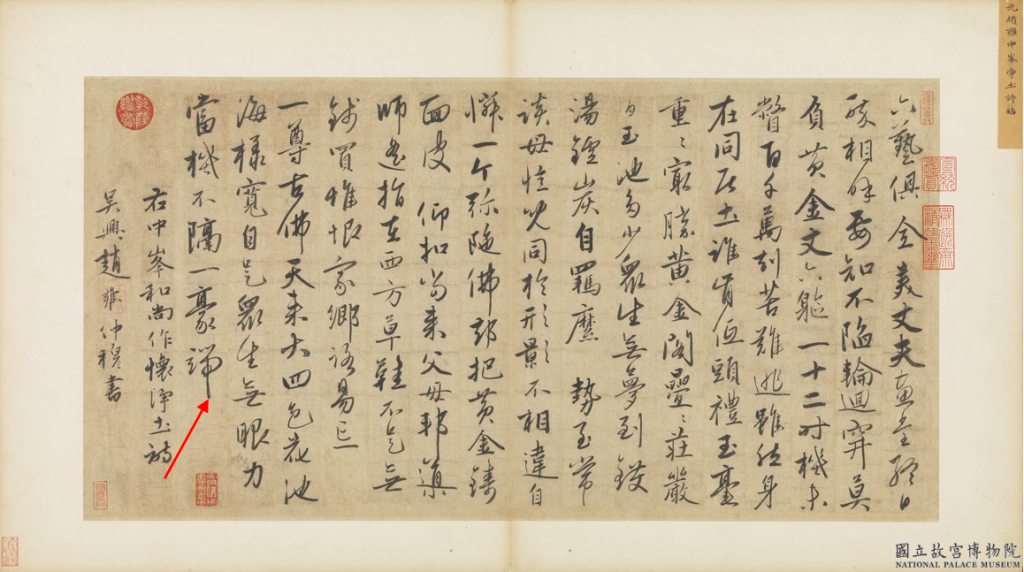 元趙雍中峯淨土詩帖
六藝俱全美丈夫
相 要知不陷輪迴穽莫
負黃金丈六軀一十二時機未
瞥百千萬劫苦難逃雖然身
在同居土誰肯低頭禮玉毫
重〻最勝黃金閣疊〻莊嚴
白玉池多少眾生無夢到鑊
湯鑪炭自羈縻 勢至常
談母憶兒同於形影不相違自
慚一个彌陀佛却把黃金鑄
面皮 仰扣當來父母
師遙指在西方草鞋不是無
錢買惟恨家鄉路易忘
一尊古佛天來大四色花池
海樣寬自是眾生無眼力
當機不隔一豪端
右中峯和尚作懷淨土詩
吳興趙雍仲穆書
國立故宮博物院
NATIONAL PALACE MUSEUM